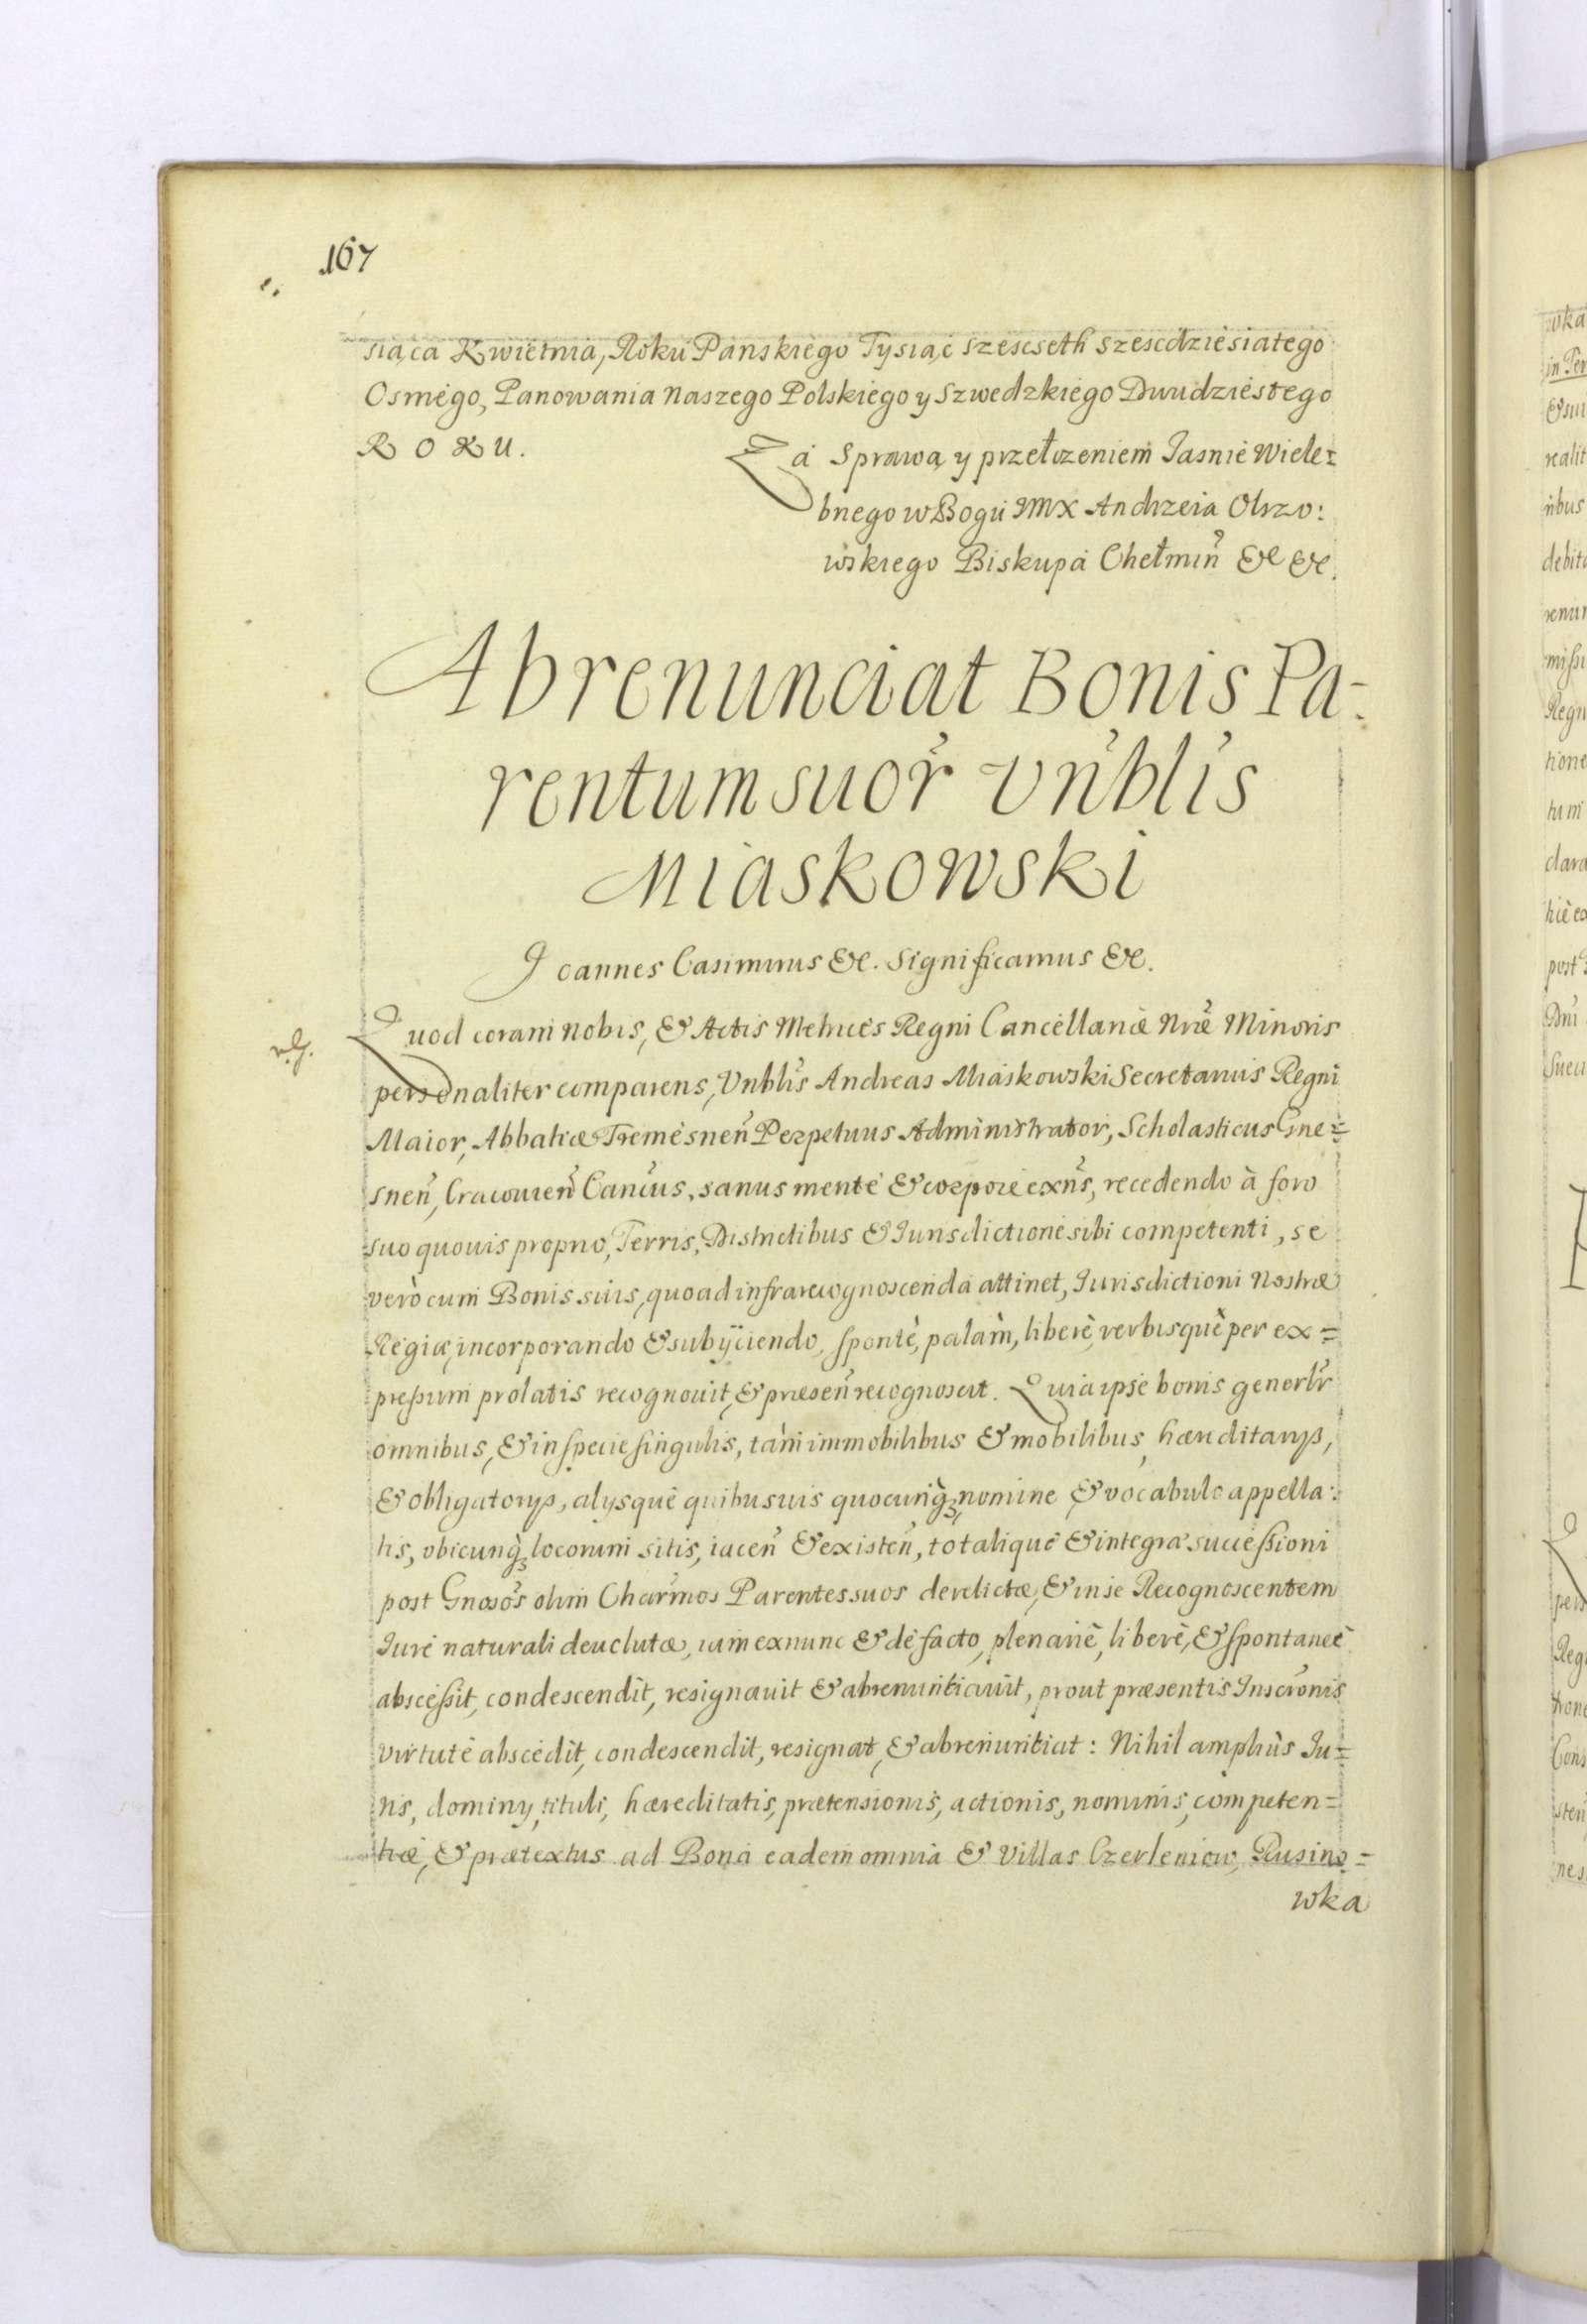 167
siąca Kwietnia, Roku Panskiego Tysiąc szescseth szescdziesiatego
Osmego, Panowania naszego Polskiego y Szwedzkiego Dwudziestego
ROKU.
Za Sprawą y przełożeniem Jasnie Wiele=
bnego w Bogu JMX Andrzeia Olszo:
wskiego Biskupa Chełmin̄ &c &c.
Abrenunciat Bonis Pa-
rentum suor̄ Vn̄blis
Miaskowski
Joannes Casimirus &c. Significamus &c.
Quod coram nobis, & Actis Metrices Regni Cancellariæ Nr̄æ Minoris
personaliter comparens, Vn̄blis Andreas Miaskowski Secretarius Regni
Maior, Abbatiæ Tremesnen̄ Perpetuus Administrator, Scholasticus Gne=
snen̄, Cracouien̄ Can̄cus, sanus mente & corpore exn̄s, recedendo à foro
suo quouis proprio, Terris, Districtibus & Iurisdictione sibi competenti, se
verò cum Bonis suis, quoad infrarecognoscenda attinet, Iurisdictioni Nostræ
Regiæ, incorporando & subÿciendo, sponte, palàm, liberè, verbisquè per ex=
pressum prolatis recognouit, & præsen̄ recognoscit. Quia ipse bonis gener̄lr
omnibus, & in specie singulis, tàm immobilibus & mobilibus, hæreditarys,
& obligatorys, alysquè quibusuis quocunq̀ꝫ nomine & vocabulo appella:
tis, vbicunq̀ꝫ locorum sitis, iacen̄ & existen̄, totalique & integræ successioni
post Gn̄osos olim Char̄mos Parentes suos derelictæ, & in se Recognoscentem
Iure naturali deuolutæ, iam exnunc & de facto, plenariè, liberè, & spontaneè
abscessit, condescendit, resignauit & abrenuntiauit, prout præsentis Inscr̄onis
virtute abscedit, condescendit, resignat, & abrenuntiat: Nihil ampliùs Iu=
ris, dominy, tituli, hæreditatis, prætensionis, actionis, nominis, competen=
tiæ, & prætextus ad Bona eadem omnia & Villas Czerleniow, Rusino=
wka